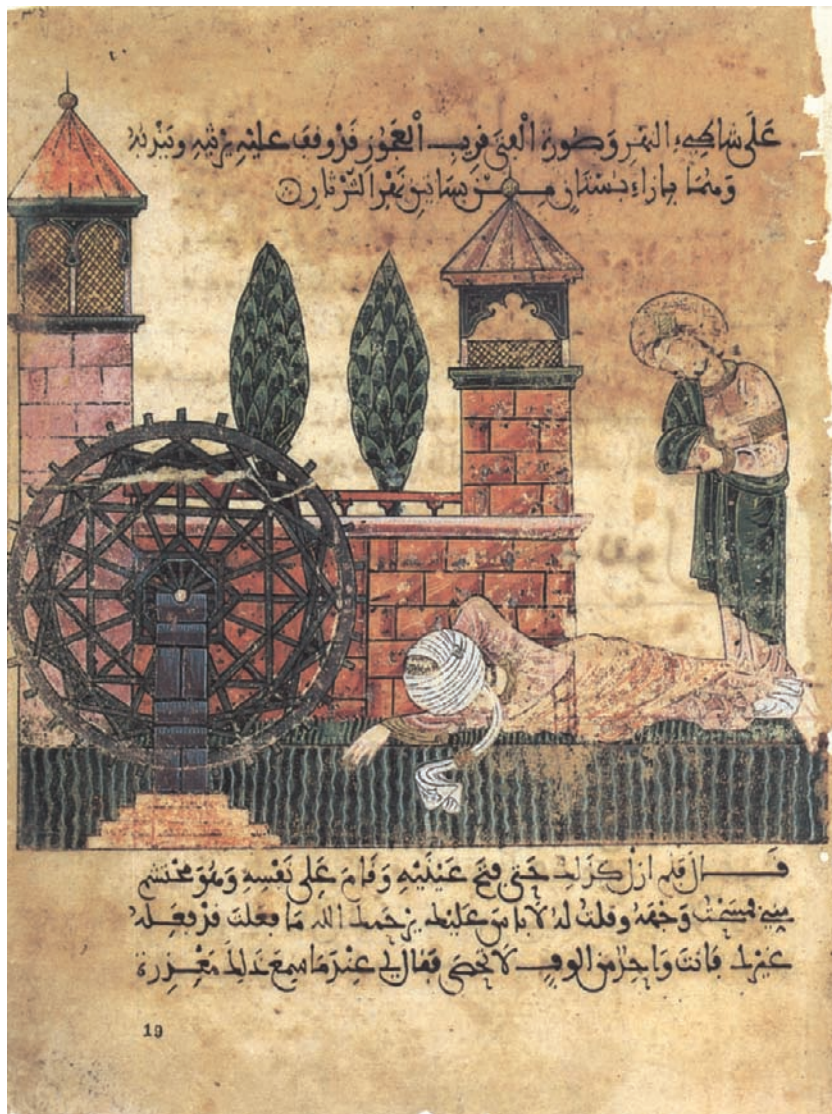 على شاطىء النهر وصورة الفتى قريب العجوز قد وقف عليه يرثيه ويندبه
وهما بازاء بستان من بساتين نهر الثرثار
قال فلم ازل كذلك حتى فتح عينيه وقام على نفسه وهو محتشم
مني فمسحت وجهه وقلت له لا باس عليك يرحمك الله ما فعلت قد فعله
غيرك فانت واحد من الوف لا تحصى فقال لي عندما سمع ذلك معذرة
19